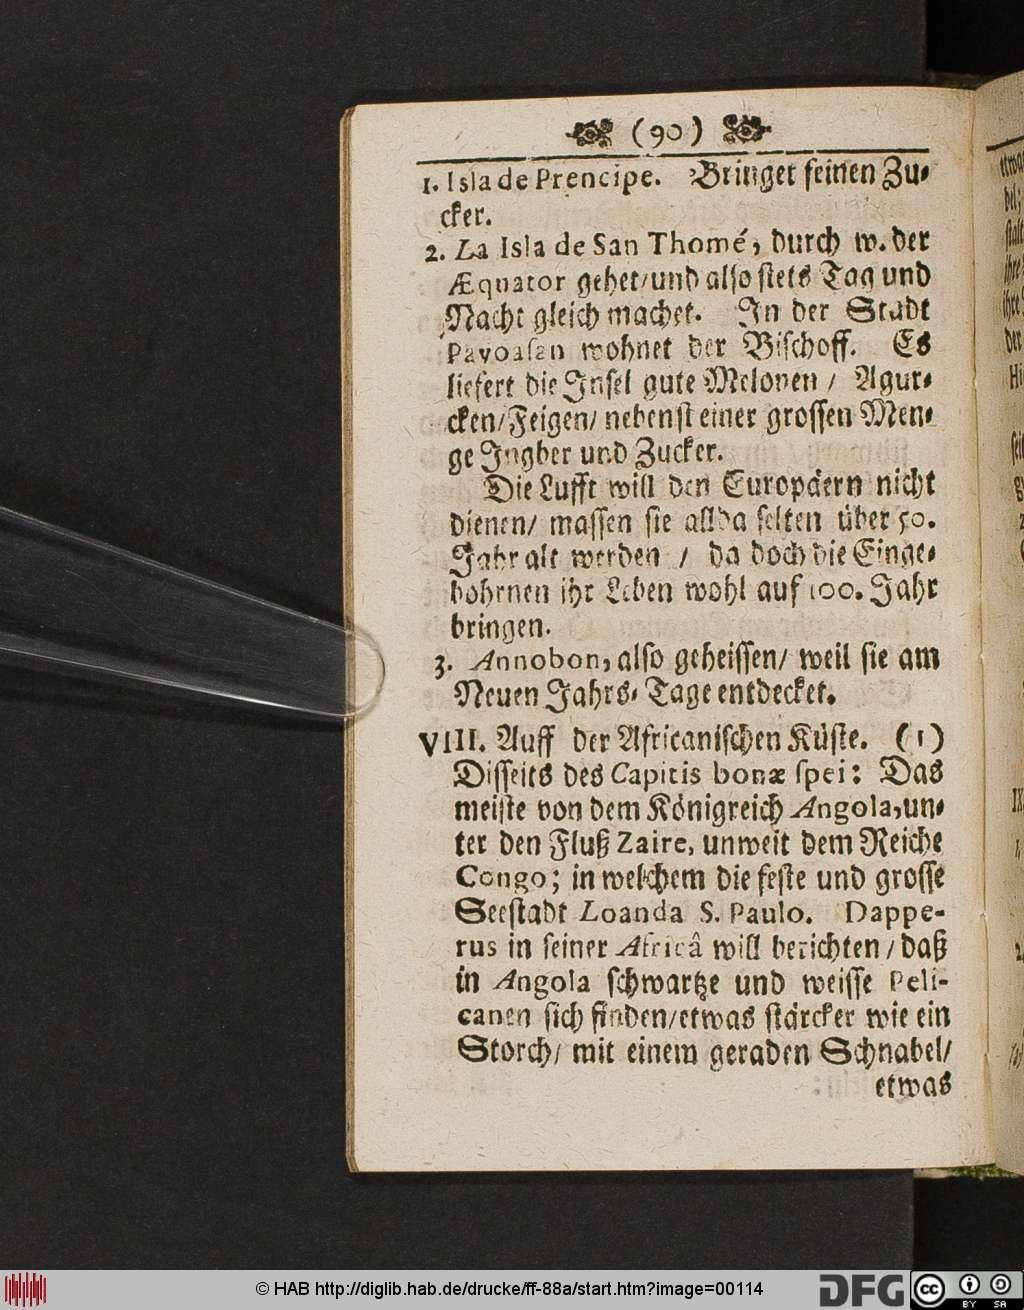 (90)
1. Isla de Prencipe. Bringet feinen Zu-
cker.
2. La Isla de San Thomé, durch w. der
Æquator gehet/ und also stets Tag und
Nacht gleich machet. In der Stadt
Pavoasan wohnet der Bischoff. Es
liefert die Insel gute Melonen / Agur-
cken/ Feigen/ nebenst einer grossen Men-
ge Ingber und Zucker.
Die Lufft will den Europäern nicht
dienen/ massen sie allda selten über 50.
Jahr alt werden / da doch die Einge-
bohrnen ihr Leben wohl auf 100. Jahr
bringen.
3. Annobon, also geheissen/ weil sie am
Neuen Jahrs-Tage entdecket.
VIII. Auff der Africanischen Küste. (1)
Disseits des Capitis bonæ spei: Das
meiste von dem Königreich Angola, un-
ter den Fluß Zaire, unweit dem Reiche
Congo; in welchem die feste und grosse
Seestadt Loanda S. Paulo. Dappe-
rus in seiner Africâ will berichten / daß
in Angola schwartze und weisse Peli-
canen sich finden/ etwas stärcker wie ein
Storch/ mit einem geraden Schnabel/
etwas
© HAB http://diglib.hab.de/drucke/ff-88a/start.htm?image=00114
DFG
cc
BY SA